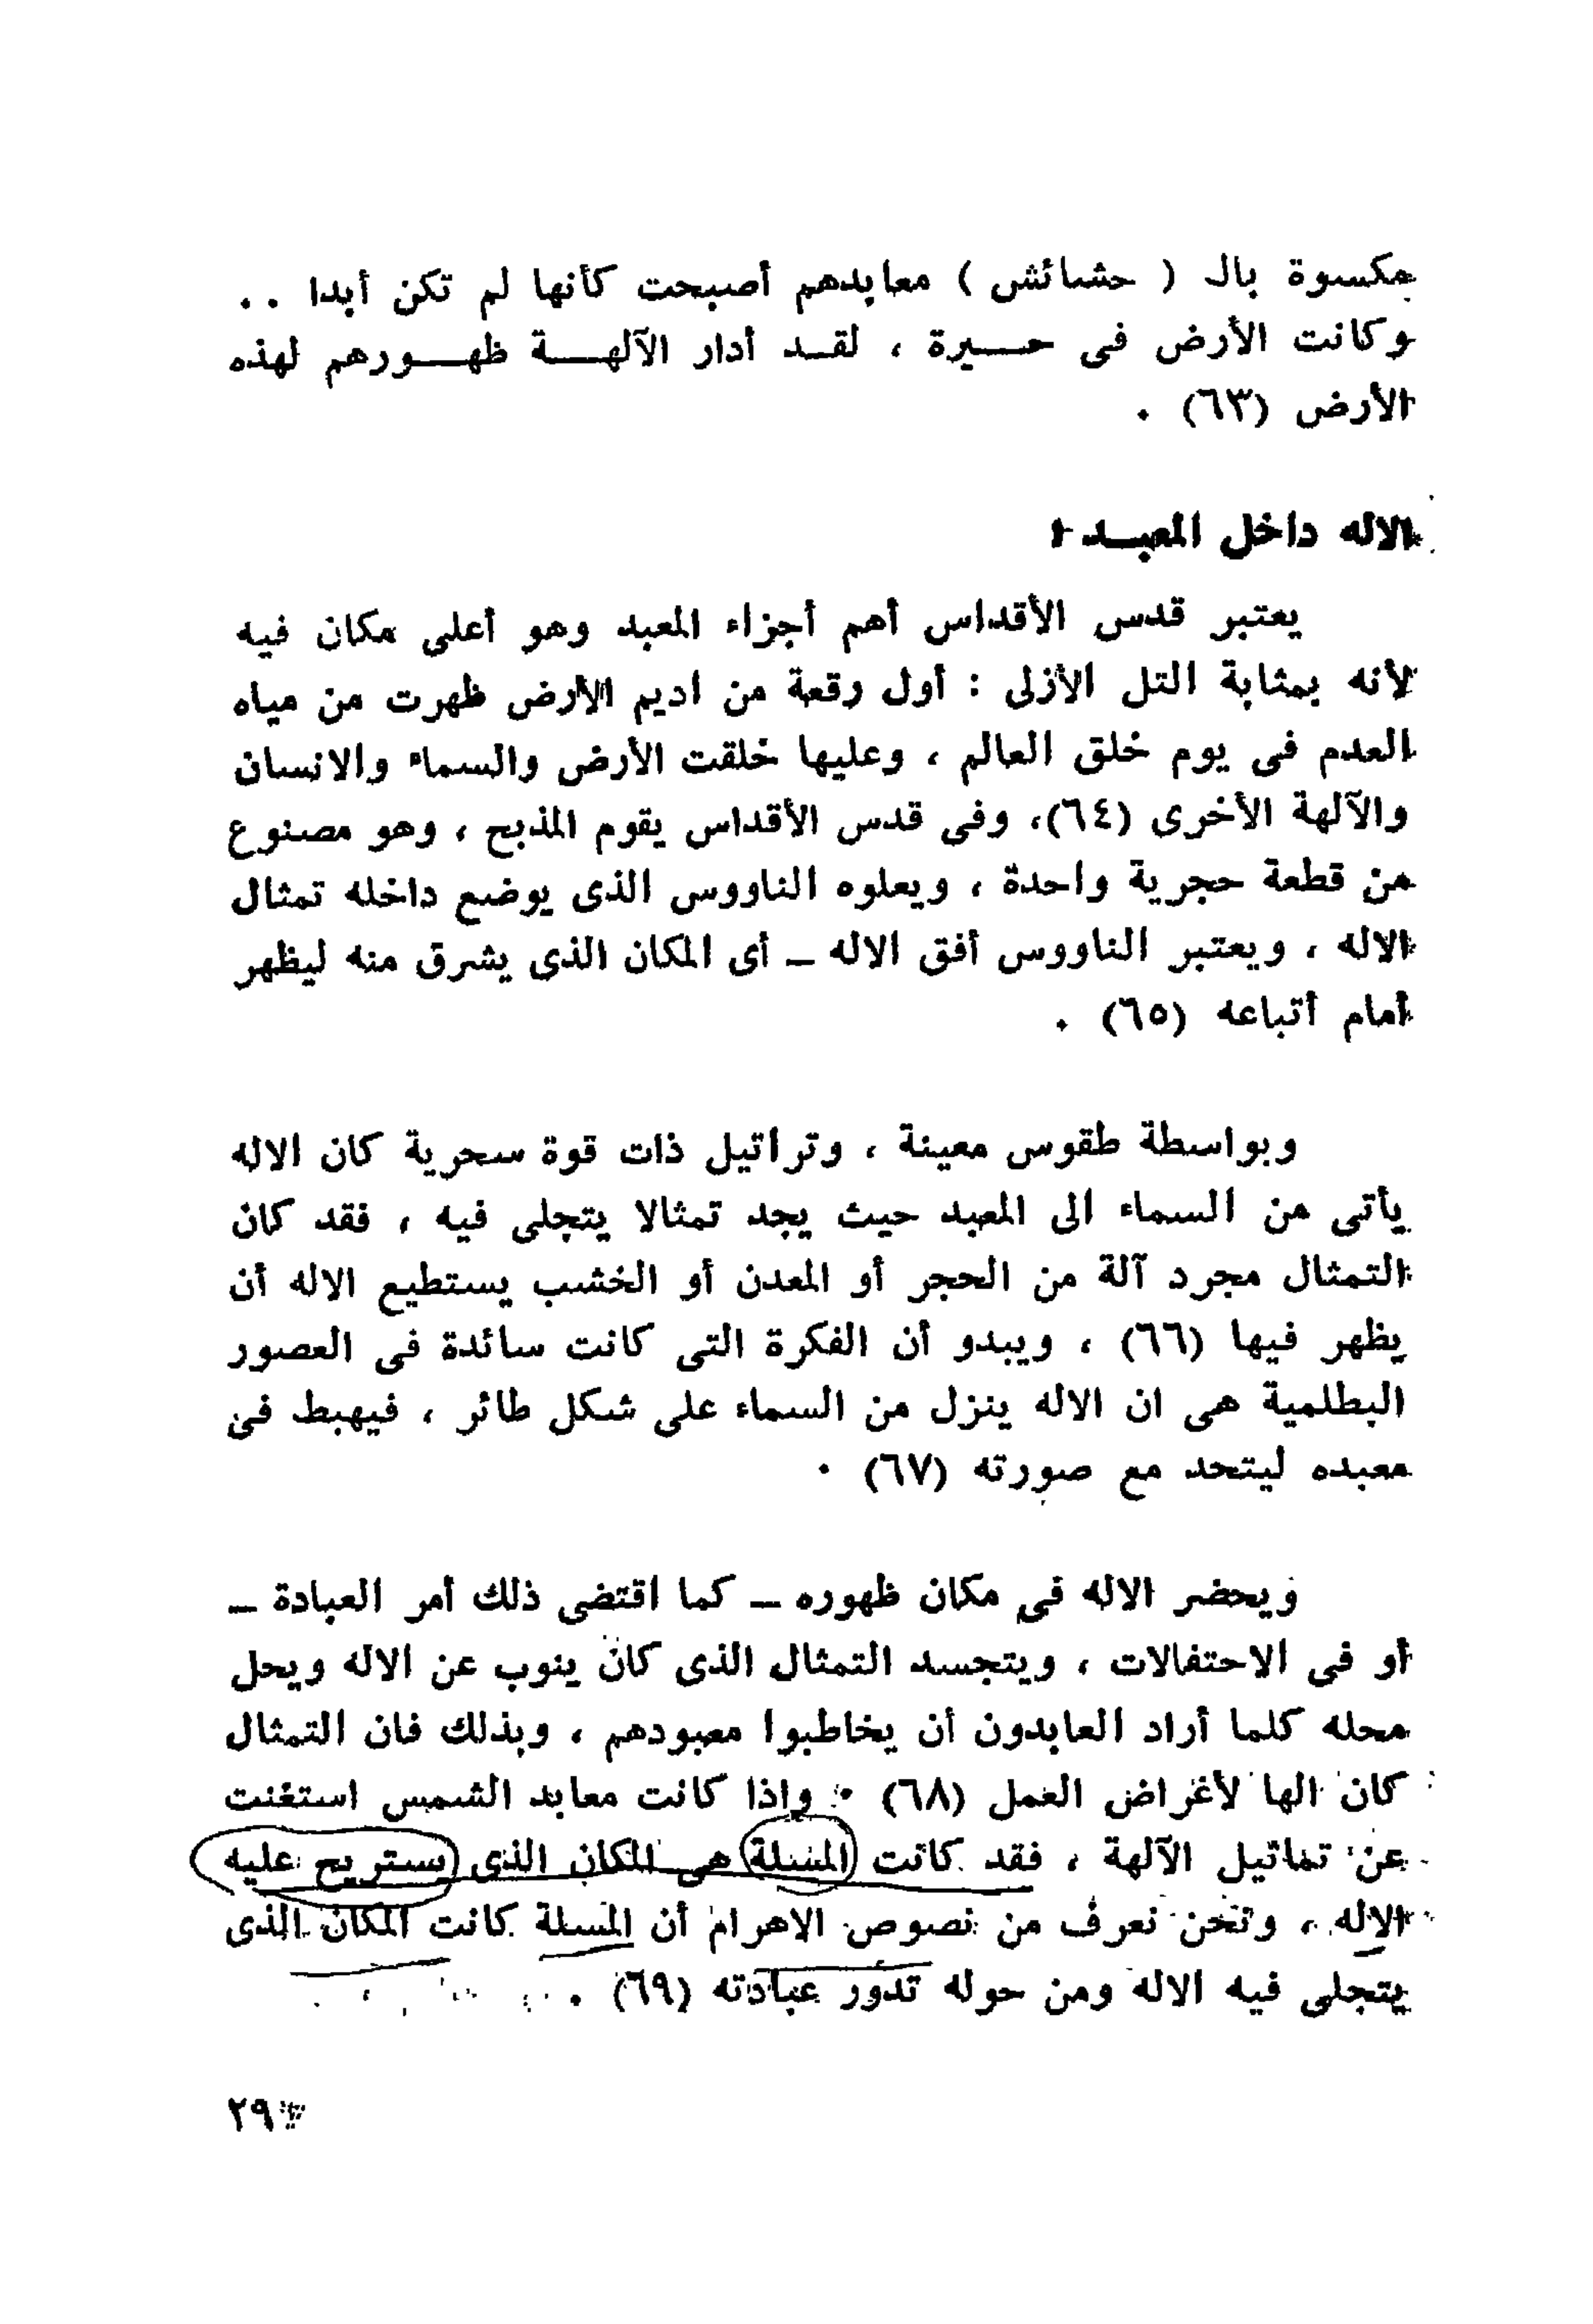 مكسوة بال ( حشائش ) معابدهم أصبحت كأنها لم تكن أبدا ..
وكانت الأرض فى حيرة ، لقد أدار الآلهة ظهورهم لهذه
الأرض (٦٣) .
الاله داخل المعبد :
يعتبر قدس الأقداس أهم أجزاء المعبد وهو أعلى مكان فيه
لأنه بمثابة التل الأزلى : أول رقعة من اديم الأرض ظهرت من مياه
العدم فى يوم خلق العالم ، وعليها خلقت الأرض والسماء والانسان
والآلهة الأخرى (٦٤)، وفى قدس الأقداس يقوم المذبح ، وهو مصنوع
من قطعة حجرية واحدة ، ويعلوه الناووس الذى يوضع داخله تمثال
الاله ، ويعتبر الناووس أفق الاله – أى المكان الذى يشرق منه ليظهر
أمام أتباعه (٦٥) .
وبواسطة طقوس معينة ، وتراتيل ذات قوة سحرية كان الاله
يأتى من السماء الى المعبد حيث يجد تمثالا يتجلى فيه ، فقد كان
التمثال مجرد آلة من الحجر أو المعدن أو الخشب يستطيع الاله أن
يظهر فيها (٦٦) ، ويبدو أن الفكرة التى كانت سائدة فى العصور
البطلمية هى ان الاله ينزل من السماء على شكل طائر ، فيهبط فى
معبده ليتحد مع صورته (٦٧) .
ويحضر الاله فى مكان ظهوره – كما اقتضى ذلك أمر العبادة –
أو فى الاحتفالات ، ويتجسد التمثال الذى كان ينوب عن الاله ويحل
محله كلما أراد العابدون أن يخاطبوا معبودهم ، وبذلك فان التمثال
كان الها لأغراض العمل (٦٨) . واذا كانت معابد الشمس استغنت
عن تماثيل الآلهة ، فقد كانت المسلة هى المكان الذى يستريح عليه
الاله ، ونحن نعرف من نصوص الاهرام أن المسلة كانت المكان الذى
يتجلى فيه الاله ومن حوله تدور عبادته (٦٩) .
٢٩